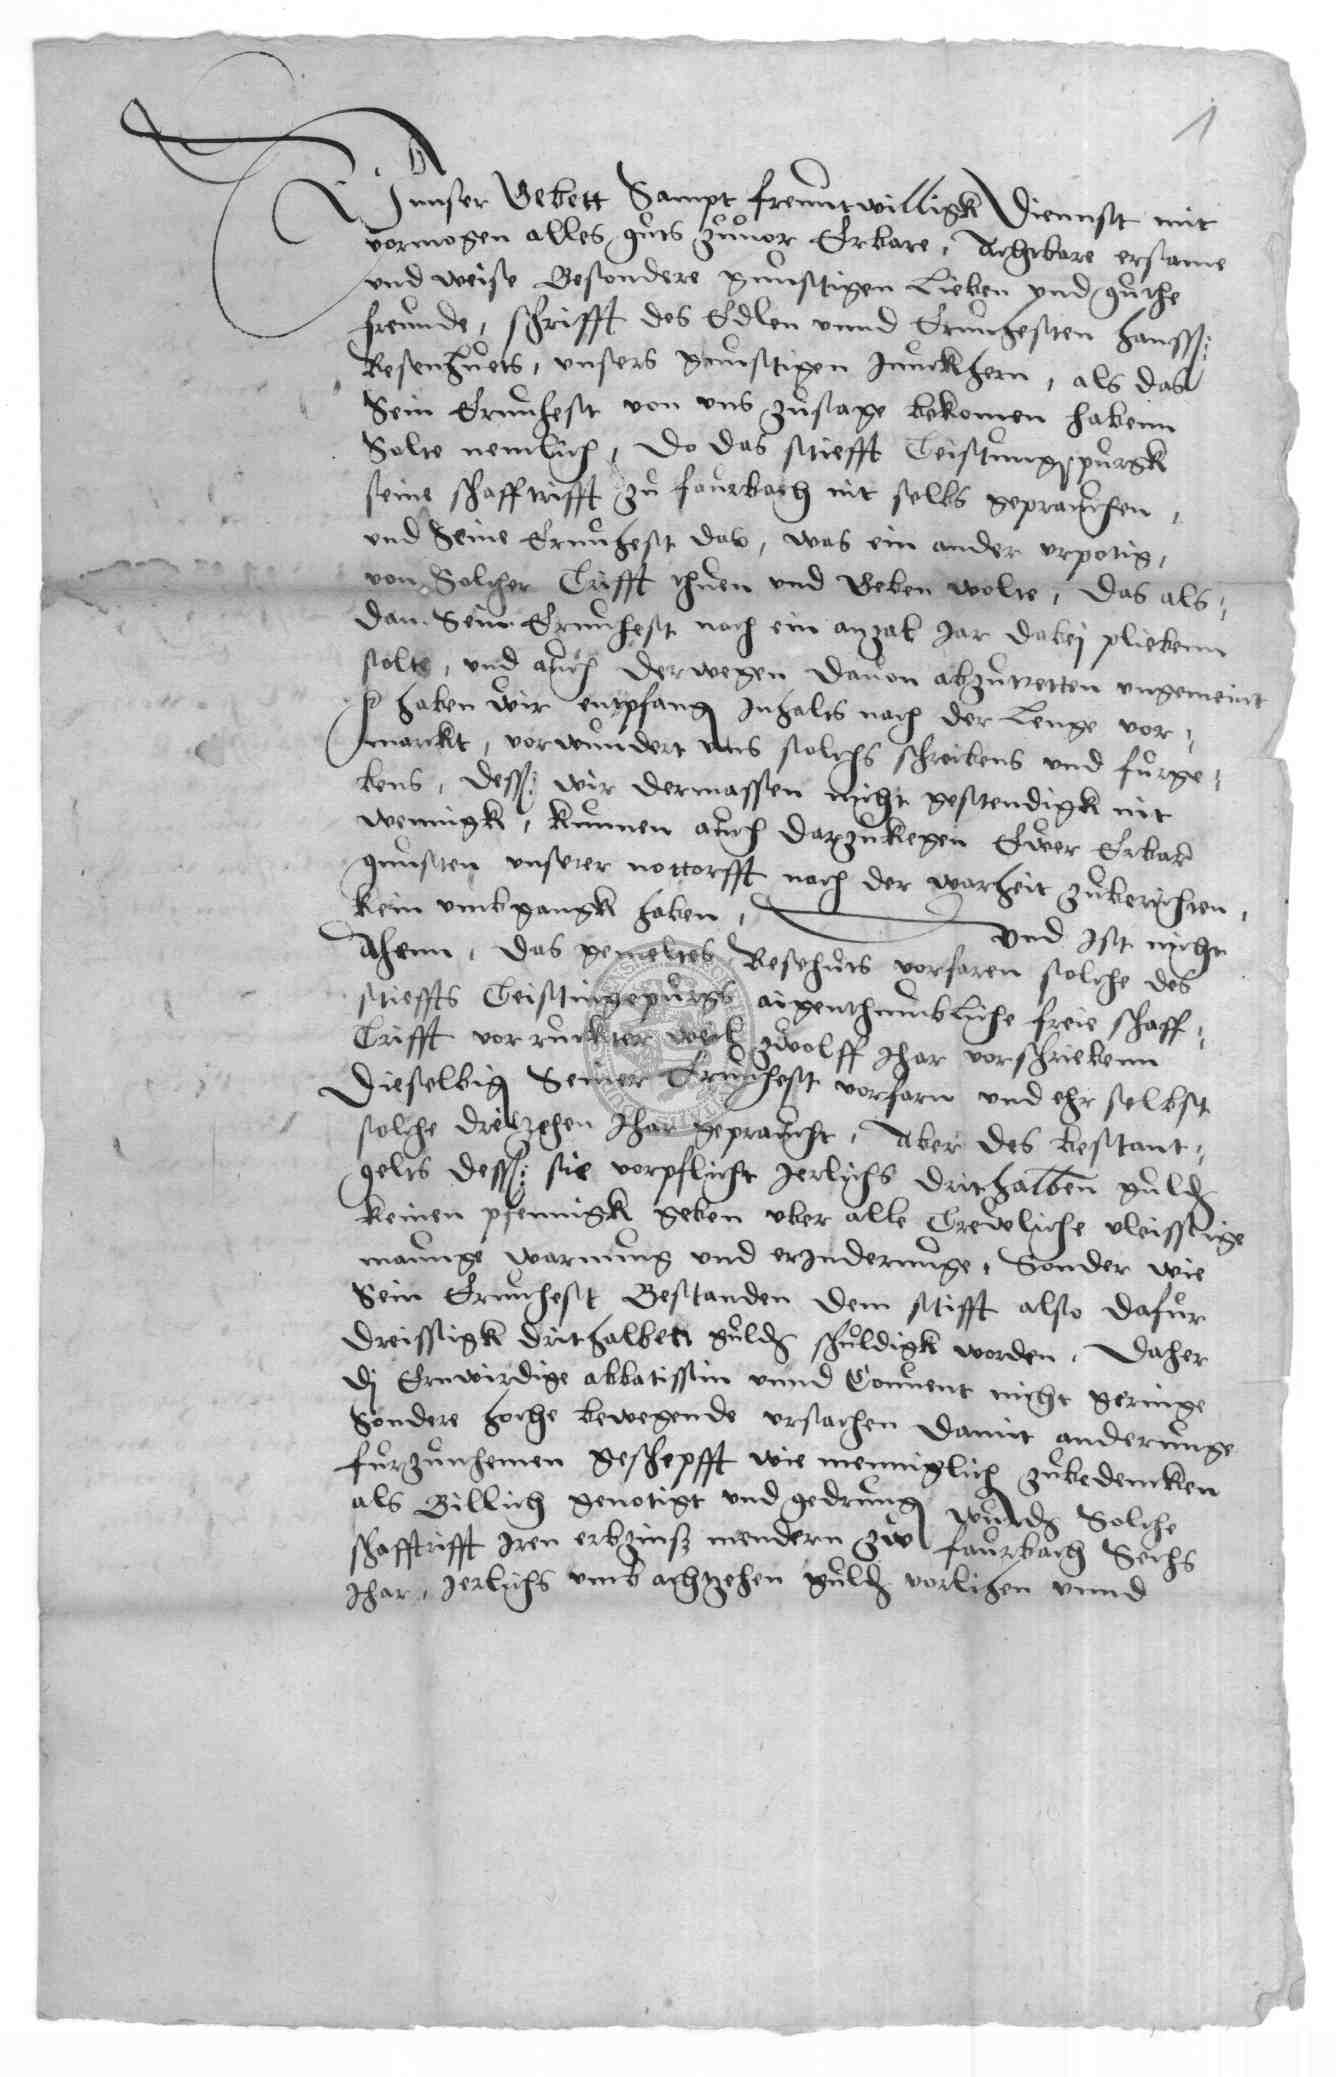 1
Vnnser Gebett Sampt freuntwilligk Diennst mit
vormogen alles guts zuuor Erbare, Achtbare ersame
vnd weise Besondere gunstigen Lieben vnd guthe
freunde, schrifft des Edlen vnnd Ernuhesten hanssn
Resenhuets, vnsers gunstigen Junckhern, als das
Sein Ernuhest von vns zusage bekomen habenn
Solte nemlich, Do das stiefft Teistungspurgk
seine schafftrifft zu faurbach nit selbs geprauchen,
vnd Seine Ernuhest das, was ein ander vrpotig,
von Solcher Trifft thuen vnd Geben wolte, Das als-
dan Sein Ernuhest noch ein anzal Jar dabej pliebenn
solte, vnd auch derwegen dauon abzutretten vngemeint
haben wir entpfang Inhalts nach der Lenge vor-
marckt, vorwundert vns solchs schreibens vnd furge-
bens, dess wir dermassen nicht gestendigk nit
wenigk, kunnen auch darzukegen Ewer Erbar
gunsten vnserer nottorfft nach der warheit zuberichten,
kein vmbgangk haben, Vnd Ist nicht
Ahenn, Das gemeltes Resehuts vorfaren solche des
stieffts Teistingepurgs aigenthumbliche freie schaff-
Trifft vorruckter weil zwolff Jhar vorschriebenn
Dieselbig Seiner Ernuhest vorfarn vnd ehr selbst
solche dreizehen Jhar gepraucht, Aber des bestant-
gelts dess sie vorpflicht Jerlichs drithalben guld
keinen pfennigk geben vber alle Trewliche vleissige
manunge warnung vnd erinderunge, Sonder wie
Sein Ernuhest Bestanden dem stifft also dafur
dreissigk drithalben guld schuldigk worden, Daher
dj Ernwirdige abbatissin vnnd Conuent nicht geringe
Sondere hoche bewegende vrsachen damit anderunge
furzunhemen geschepfft wie menniglich zubedencken
als Billich genotigt vnd gedrung wurd Solche
schafftrifft Jren erbzinss mendern zw faurbach Sechs
Jhar, Jerlichs vmb achtzehen guld vorlihen vnnd